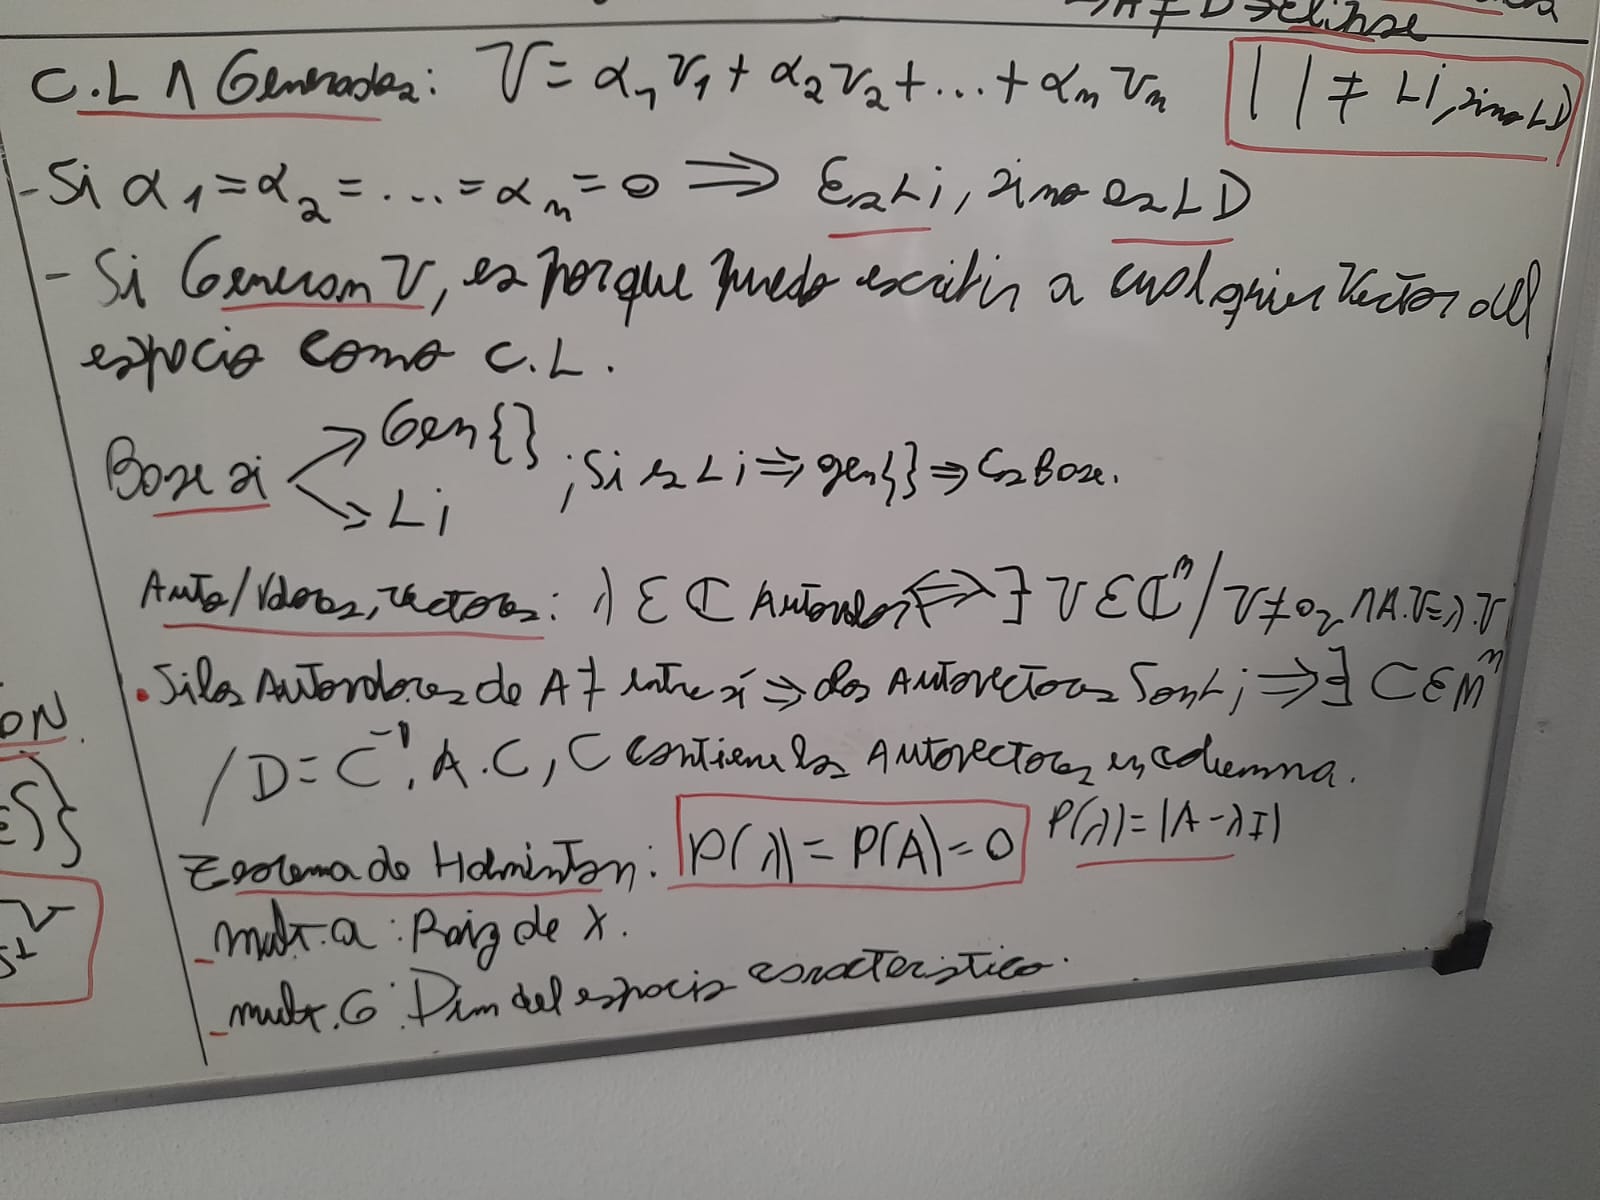 → A ≠ D → Elipse
C.L ∧ Generadas: V = α₁v₁ + α₂v₂ + ... + αₙvₙ
| | ≠ Li, sino LD
- Si α₁ = α₂ = ... = αₙ = 0 ⇒ Es Li, sino es LD
- Si Generan V, es porque puedo escribir a cualquier vector del
espacio como C.L.
Base si → Gen{} → Li ; Si es Li ⇒ gen{} ⇒ Es Base.
Auto/Valores, vectores: λ ∈ ℂ Autovalor ⇔ ∃ V ∈ ℂⁿ / V ≠ 0ᵥ ∧ A.V = λ.V
• Si los Autovalores de A ≠ entre sí ⇒ los Autovectores son Li ⇒ ∃ C ∈ Mⁿ
/ D = C⁻¹. A . C, C contiene los Autovectores en columna.
Teorema de Halminton: P(λ) = P(A) = 0 P(λ) = |A - λI|
- mult. a : Raiz de X.
- mult. G : Dim del espacio característico.
ON